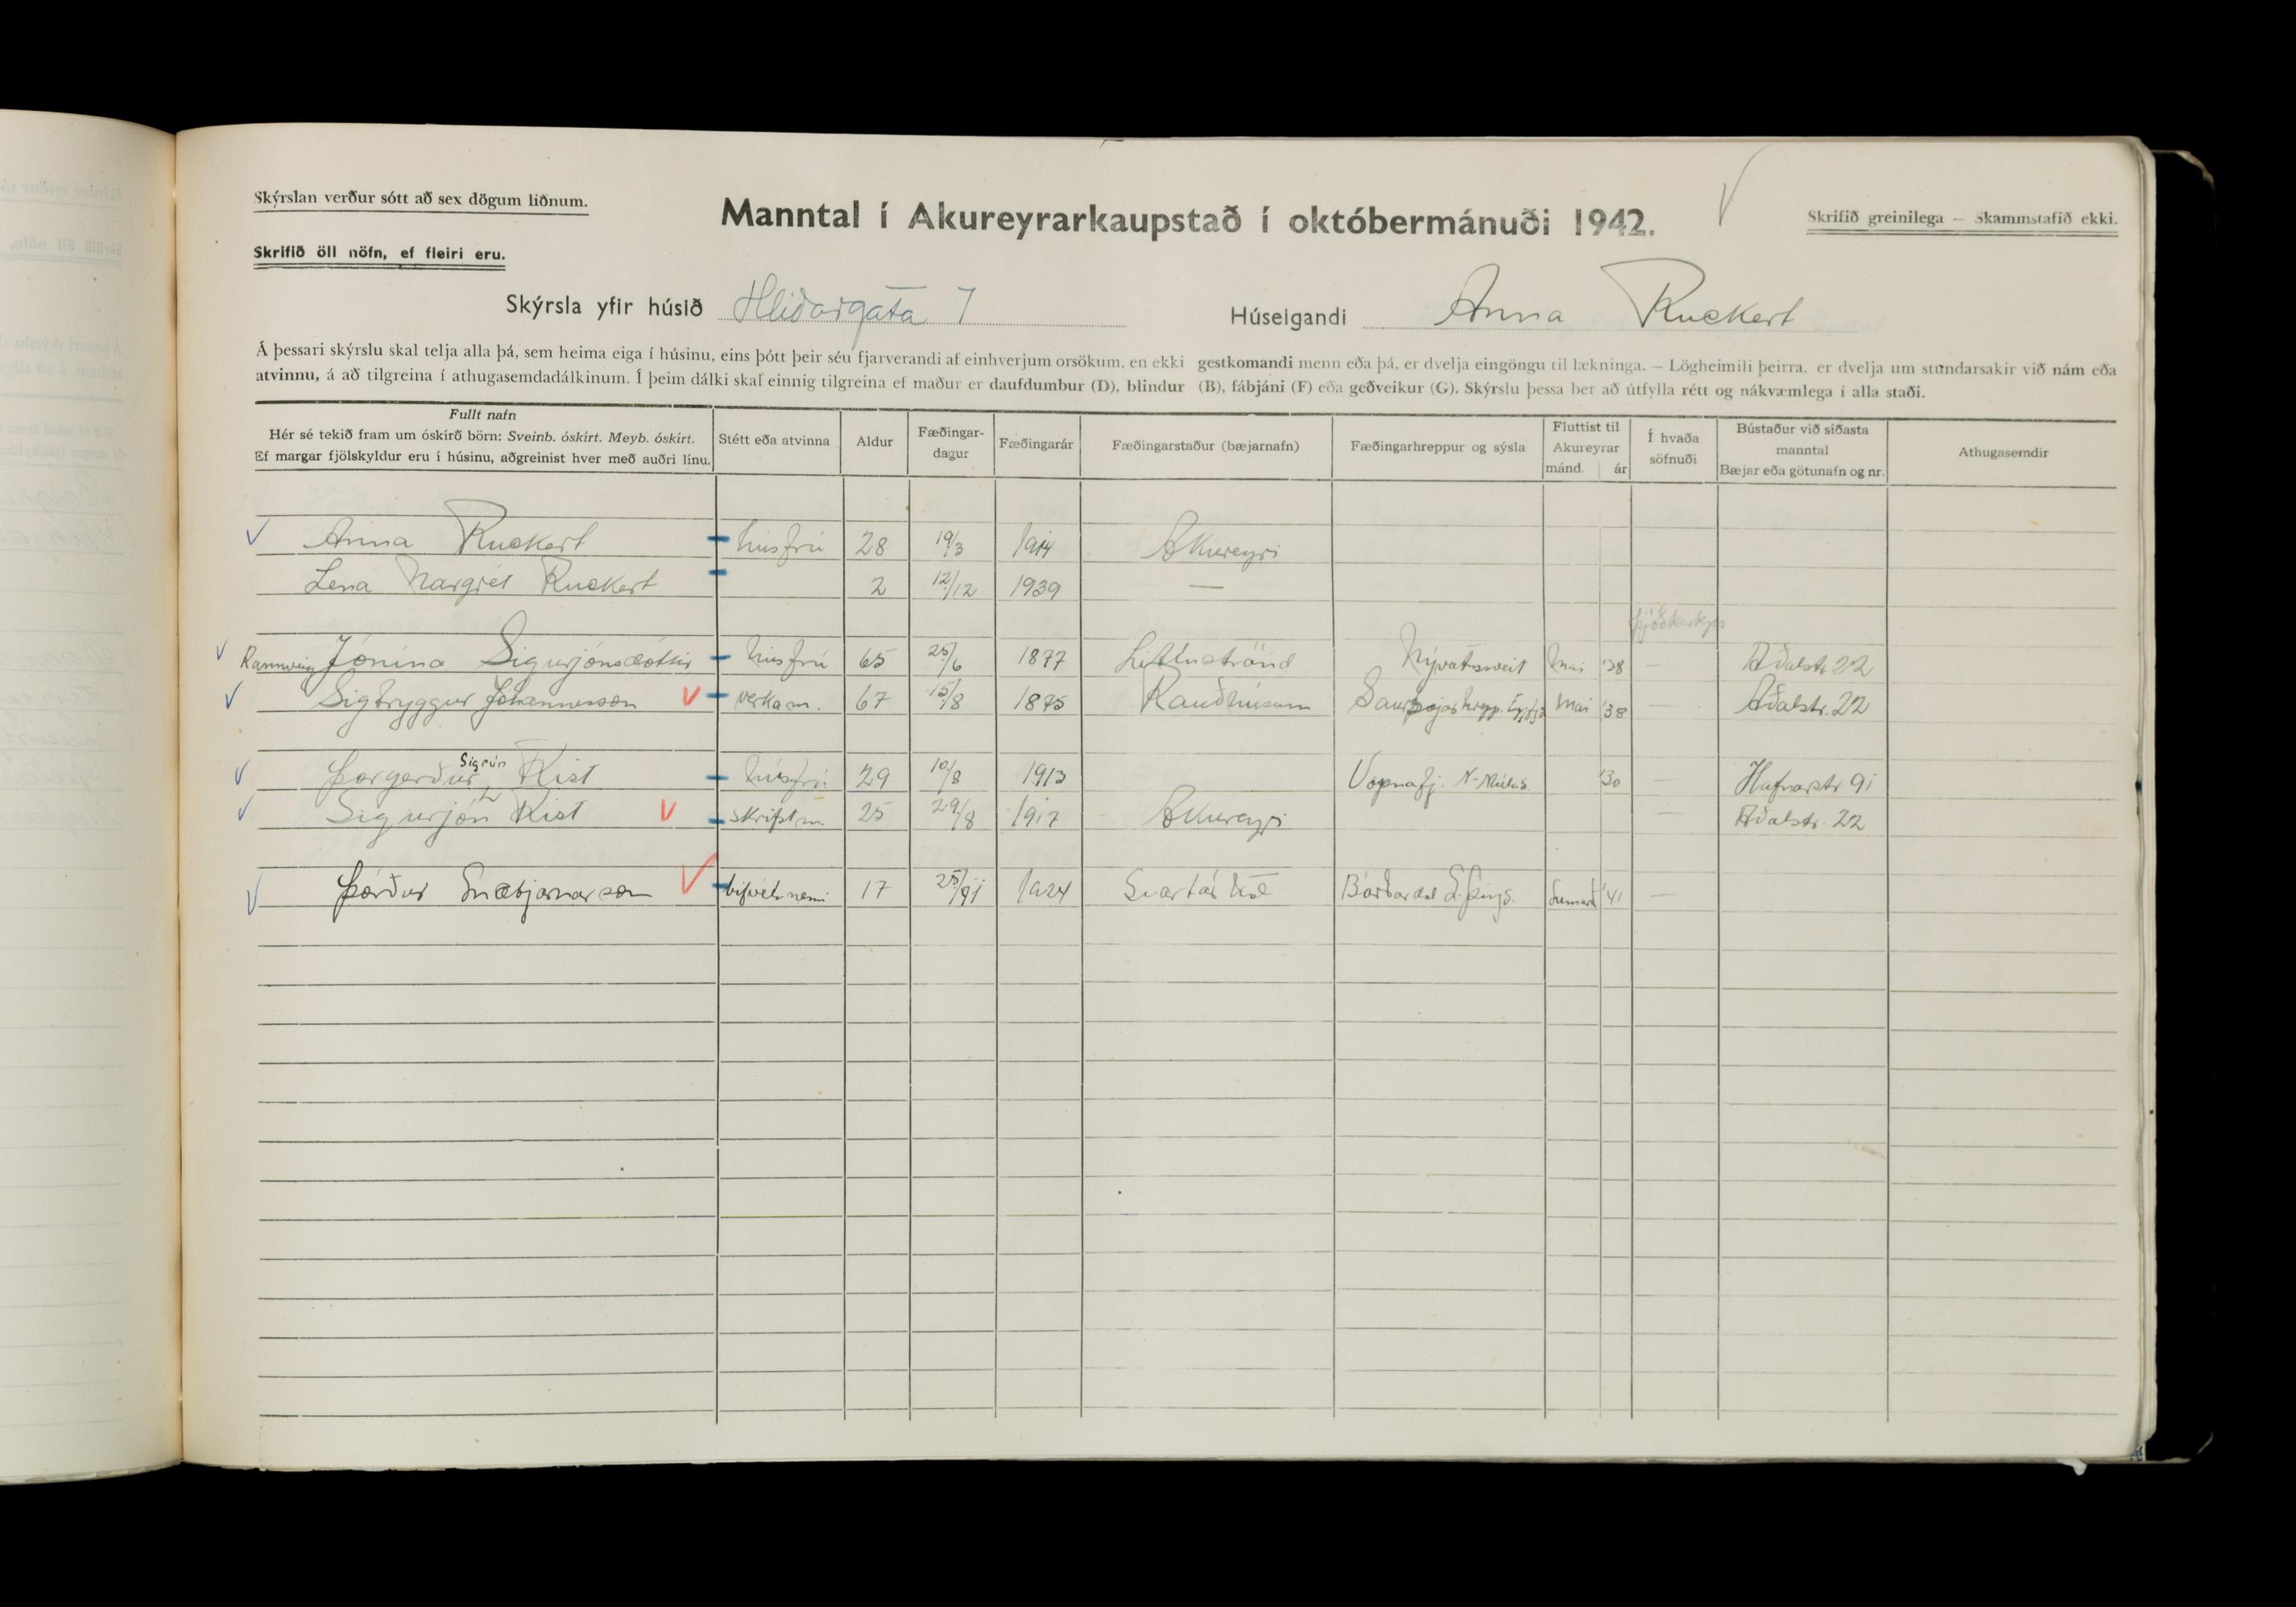 Skýrslan verður sótt að sex dögum liðnum.
Manntal í Akureyrarkaupstað í októbermánuði 1942.
Skrifið greinilega — Skammstafið ekki.
Skrifið öll nöfn, ef fleiri eru.
Skýrsla yfir húsið Hlíðargata 7 Húseigandi Anna Ruckert
Á þessari skýrslu skal telja alla þá, sem heima eiga í húsinu, eins þótt þeir séu fjarverandi af einhverjum orsökum, en ekki gestkomandi menn eða þá, er dvelja eingöngu til lækninga. — Lögheimili þeirra, er dvelja um stundarsakir við nám eða
atvinnu, á að tilgreina í athugasemdadálkinum. Í þeim dálki skal einnig tilgreina ef maður er daufdumbur (D), blindur (B), fábjáni (F) eða geðveikur (G). Skýrslu þessa ber að útfylla rétt og nákvæmlega í alla staði.
Fullt nafn
Hér sé tekið fram um óskírð börn: Sveinb. óskírt. Meyb. óskírt.
Ef margar fjölskyldur eru í húsinu, aðgreinist hver með auðri línu.
Stétt eða atvinna
Aldur
Fæðingar-
dagur
Fæðingarár
Fæðingarstaður (bæjarnafn)
Fæðingarhreppur og sýsla
Fluttist til
Akureyrar
mánd. ár
Í hvaða
söfnuði
Bústaður við síðasta
manntal
Bæjar eða götunafn og nr.
Athugasemdir
Anna Ruckert húsfrú 28 19/3 1914 Akureyri
Lena Margrét Ruckert 2 12/12 1939 —
Rannveig Jónína Sigurjónsdóttir húsfrú 65 25/6 1877 Mývatnssveit Mai '38 — Aðalstr. 22
Sigtryggur Jóhannesson verkam. 67 15/8 1875 Rauðhúsum Mai '38 — Aðalstr. 22
Sigrún
Þorgerður Rist húsfrú 29 10/8 1913 Vopnafj. N-Múlas. '30 — Hafnarstr. 91
Sigurjón Rist skrifstm. 25 29/8 1917 Akureyri — Aðalstr. 22
Þórður Snæbjarnarson bifvélanemi 17 1924 Svartárkot Bárðardal S.Þing. '41 —